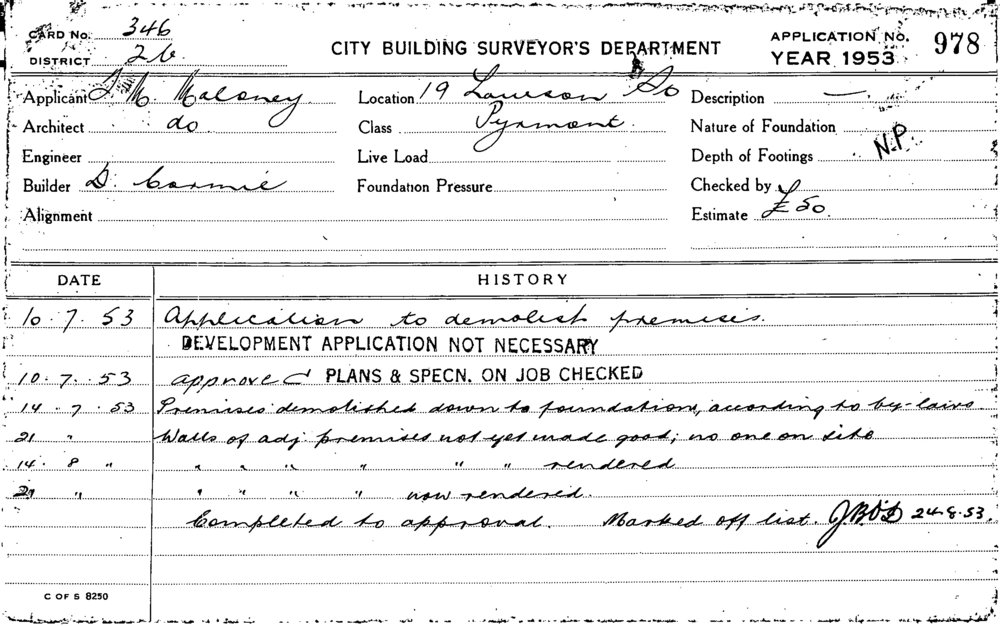 CARD No. 346
DISTRICT 26
CITY BUILDING SURVEYOR'S DEPARTMENT
APPLICATION No. 978
YEAR 1953
Applicant J. M. Maloney
Location 19 Lawson So
Description —
Architect do
Class Pyrmont.
Nature of Foundation
Engineer
Live Load
Depth of Footings N.P.
Builder D. Cormie
Foundation Pressure
Checked by
Alignment
Estimate £50.
DATE HISTORY
10. 7. 53 Application to demolish premises.
DEVELOPMENT APPLICATION NOT NECESSARY
10. 7. 53 approved PLANS & SPECN. ON JOB CHECKED
14. 7. 53 Premises demolished down to foundation, according to by-laws
21 " Walls of adj premises not yet made good; no one on site
14. 8 " " " " " " " rendered
" " " " " now rendered.
Completed to approval. Marked off list. JBO'D 24.8.53.
C OF S 8250